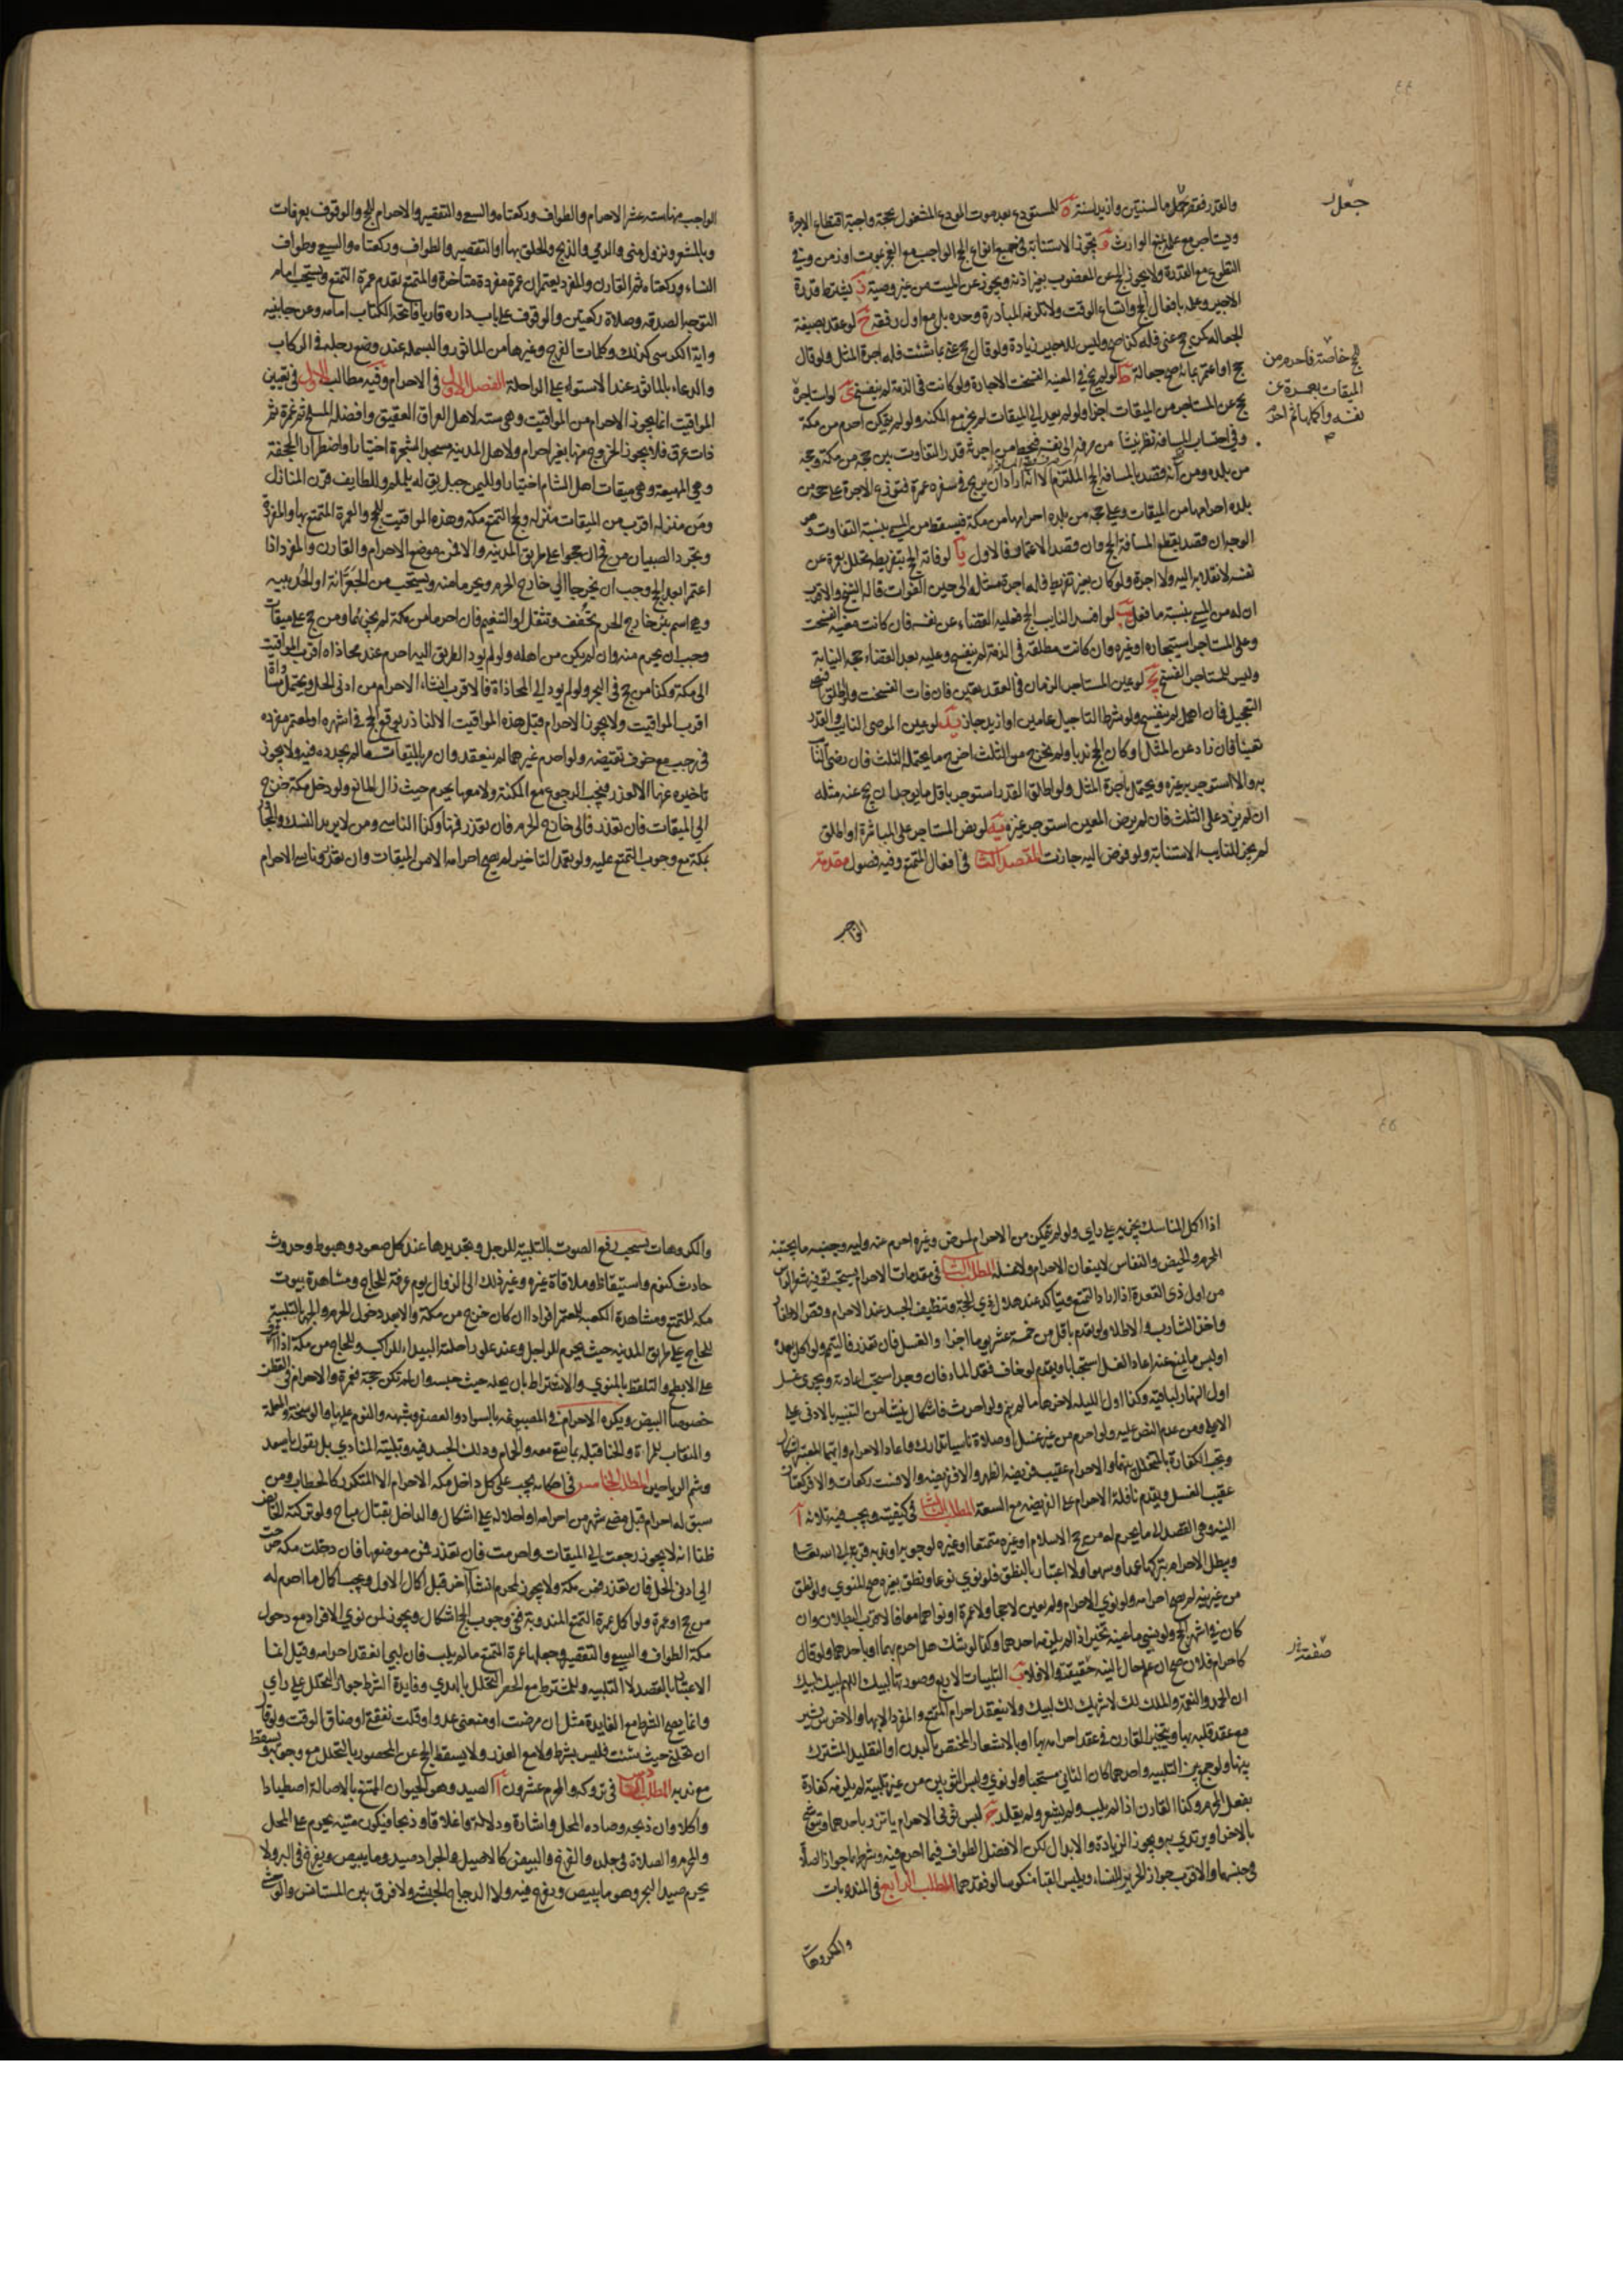 ٤٤
والقدر فقصر جعل ما لسنتين وازيد لسنة ه للمستودع بعد موت المودع المشغول بحجة واجبة اقتطاع الاجرة
جعل
ويستاجر مع علمه منع الوارث و تجوز الاستنابة في جميع انواع الحج الواجب مع العجز بموت او زمن وفي
التطوع مع القدرة ولا يجوز الحج عن المعضوب بغير اذنه ويجوز عن الميت من غير وصية ز يشترط قدرة
الاجير وعلمه بافعال الحج واتساع الوقت ولا تلزمه المبادرة وحده بل مع اول رفقة ح لو عقد بصيغة
الجعالة كمن حج عني فله كذا صح وليس للاجير زيادة ولو قال حج عني بما شئت فله اجرة المثل ولو قال
حج او اعتمر بمائة صح جعالة ط لو لم يحج في المعينة انفسخت الاجارة ولو كانت في الذمة لم ينفسخ ى لو استاجره
للحج خاصة فاحرم من
الميقات بعمرة عن
نفسه واكملها ثم احرم
بحج عن المستاجر من الميقات اجزا ولو لم يعد الى الميقات لم يجز مع المكنة ولو لم يتمكن احرم من مكة
وفي احتساب المسافة نظر ينشا من صرفه الى نفسه فيحط من اجرته قدر التفاوت بين حجه من مكة وحجه
من بلده ومن انه قصد بالمسافة الحج الملتزم الا انه اراد ان يربح في سفره عمرة فتوزع الاجرة على حجه من
بلده احرامها من الميقات وعلى حجه من بلده احرامها من مكة فيسقط من المسمى بنسبة التفاوت وهو
الوجه ان قصد بقطع المسافة الحج وان قصد الاعتمار فالاول يا لو فاته الحج بتفريط تحلل بعمرة عن
نفسه لانقلابه اليه ولا اجرة ولو كان بغير تفريط فله اجرة مثله الى حين الفوات قاله الشيخ والاقرب
ان له من المسمى بنسبة ما فعل يب لو افسد النايب الحج فعليه القضاء عن نفسه فان كانت معينة انفسخت
وعلى المستاجر استيجاره او غيره وان كانت مطلقة في الذمة لم ينفسخ وعليه بعد القضاء حجة النيابة
وليس للمستاجر الفسخ يج لو عين المستاجر الزمان في العقد تعين فان فات انفسخت ولو اطلق اقتضى
التعجيل فان اهمل لم ينفسخ ولو شرطا التاجيل عامين او ازيد جاز يد لو عين الموصي النايب والقدر
تعينا فان زاد عن المثل او كان الحج ندبا ولم يخرج من الثلث اخرج ما يحتمله الثلث فان رضي النايب
به والا استوجر به غيره ويحتمل باجرة المثل ولو اطلق القدر استوجر باقل ما يوجد ان يحج عنه مثله
ان لم يزد على الثلث فان لم يرض المعين استوجر غيره يه لو نص المستاجر على المباشرة او اطلق
لم يجز للنايب الاستنابة ولو فوض اليه جازت المقصد الثاني في افعال التمتع وفيه فصول مقدمة
الواجب
الواجب منها ستة عشر الاحرام والطواف وركعتاه والسعي والتقصير والاحرام للحج والوقوف بعرفات
وبالمشعر ونزول منى والرمي والذبح والحلق بها او التقصير والطواف وركعتاه والسعي وطواف
النساء وركعتاه ثم القارن والمفرد يعتمران عمرة مفردة متاخرة والمتمتع يقدم عمرة التمتع ويستحب امام
التوجه الصدقة وصلاة ركعتين والوقوف على باب داره قاريا فاتحة الكتاب امامه وعن جانبيه
واية الكرسي كذلك وكلمات الفرج وغيرها من الماثور والبسملة عند وضع رجله في الركاب
والدعاء بالماثور عند الاستواء على الراحلة الفصل الاول في الاحرام وفيه مطالب الاول في تعيين
المواقيت انما يجوز الاحرام من المواقيت وهي ستة لاهل العراق العقيق وافضله المسلخ ثم غمرة ثم
ذات عرق فلا يجوز الخروج منها بغير احرام ولاهل المدينة مسجد الشجرة اختيارا واضطرارا الجحفة
وهي المهيعة وهي ميقات اهل الشام اختيارا ولليمن جبل يق له يلملم وللطايف قرن المنازل
ومن منزله اقرب من الميقات منزله ولحج التمتع مكة وهذه المواقيت للحج والعمرة المتمتع بها والمفردة
وتجرد الصبيان من فخ ان حجوا على طريق المدينة والا فمن موضع الاحرام والقارن والمفرد اذا
اعتمرا بعد الحج وجب ان يخرجا الى خارج الحرم ويحرما منه ويستحب من الجعرانة او الحديبية
وهي اسم بئر خارج الحرم تخفف وتثقل او التنعيم فان احرما من مكة لم يجزئهما ومن حج على ميقات
وجب ان يحرم منه وان لم يكن من اهله ولو لم يود الطريق اليه احرم عند محاذاة اقرب المواقيت
الى مكة وكذا من حج في البحر ولو لم يود الى المحاذاة فالاقرب انشاء الاحرام من ادنى الحل ويحتمل مساواة
اقرب المواقيت ولا يجوز الاحرام قبل هذه المواقيت الا لناذر يوقع الحج في اشهره او لمعتمر مفردة
في رجب مع خوف تقضيه ولو احرم غيرهما لم ينعقد وان مر بالميقات ما لم يجدده فيه ولا يجوز
تاخيره عنها الا لعذر فيجب الرجوع مع المكنة ولا معها يحرم حيث زال المانع ولو دخل مكة خرج
الى الميقات فان تعذر فالى خارج الحرم فان تعذر فمنها وكذا الناسي ومن لا يريد النسك والمجاور
بمكة مع وجوب التمتع عليه ولو تعمد التاخير لم يصح احرامه الا من الميقات وان تعذر وناسي الاحرام
٤٥
اذا اكمل المناسك يجزيه على راي ولو لم يتمكن من الاحرام لمرض وغيره احرم عنه وليه وجنبه ما يجتنبه
المحرم والحيض والنفاس لا يمنعان الاحرام ولا غسله المطلب الثاني في مقدمات الاحرام يستحب توفير شعر الراس
من اول ذي القعدة اذا اراد التمتع ويتاكد عند هلال ذي الحجة وتنظيف الجسد عند الاحرام وقص الاظفار
واخذ الشارب والاطلاء ولو تقدم باقل من خمسة عشر يوما اجزا والغسل فان تعذر فالتيمم ولو اكل بعده
او لبس ما يمنع عنه اعاد الغسل استحبابا ويقدم لو خاف فقد الماء فان وجد استحب اعادته ويجزي غسل
اول النهار لباقيه وكذا اول الليل لاخرها ما لم ينم ولو احدث فاشكال ينشا من التنبيه بالادنى على
الاعلى ومن عدم النص عليه ولو احرم من غير غسل او صلاة ناسيا تدارك واعاد الاحرام وايهما المعتبر اشكال
وتجب الكفارة بالمتخلل بينهما والاحرام عقيب فريضة الظهر والا فريضة والا فست ركعات والا فركعتان
عقيب الغسل ويقدم نافلة الاحرام على الفريضة مع السعة المطلب الثالث في كيفيته ويجب فيه ثلاثة ا
النية وهي القصد الى ما يحرم له من حج الاسلام او غيره متمتعا او غيره لوجوبه او ندبه قربة الى الله تعالى
ويبطل الاحرام بتركها عمدا وسهوا ولا اعتبار بالنطق فلو نوى نوعا ونطق بغيره صح المنوي ولو نطق
من غير نية لم يصح احرامه ولو نوى الاحرام ولم يعين لا حجا ولا عمرة او نواهما معا فالاقرب البطلان وان
كان في اشهر الحج ولو نسي ما عينه تخير اذا لم يلزمه احدهما وكذا لو شك هل احرم بهما او باحدهما ولو قال
كاحرام فلان صح ان علم حال النية حقيقة والا فلا ب التلبيات الاربع وصورتها لبيك اللهم لبيك لبيك
صفته خ
ان الحمد والنعمة والملك لك لا شريك لك لبيك ولا ينعقد احرام المتمتع والمفرد الا بها والاخرس يشير
مع عقد قلبه بها ويتخير القارن في عقد احرامه بها او بالاشعار المختص بالبدن او التقليد المشترك
بينها ولو جمع بين التلبيه واحدهما كان الثاني مستحبا ولو نوى ولبس الثوبين من غير تلبية لم يلزمه كفارة
بفعل المحرم وكذا القارن اذا لم يلب ولم يشعر ولم يقلد ج لبس ثوبي الاحرام ياتزر باحدهما ويتوشح
بالاخر او يرتدي به ويجوز الزيادة والابدال لكن الافضل الطواف فيما احرم فيه وشرطهما جواز الصلاة
في جنسهما والاقرب جواز الحرير للنساء ويلبس القباء منكوسا لو فقدهما المطلب الرابع في المندوبات
والمكروهات
والمكروهات يستحب رفع الصوت بالتلبية للرجل وتجديدها عند كل صعود وهبوط وحدوث
حادث كنوم واستيقاظ وملاقاة غيره وغير ذلك الى الزوال يوم عرفة للحاج ومشاهدة بيوت
مكة للمتمتع ومشاهدة الكعبة للمعتمر افرادا ان كان خرج من مكة والا عند دخول الحرم والجهر بالتلبية
للحاج على طريق المدينة حيث يحرم للراجل وعند علو راحلته البيداء للراكب وللحاج من مكة اذا اشرف
على الابطح والتلفظ بالمنوي والاشتراط بان يحله حيث حبسه وان لم تكن حجة فعمرة والاحرام في القطن
خصوصا البيض ويكره الاحرام في المصبوغة بالسواد والعصفر وشبهه والنوم عليها والوسخة والمعلمة
والنقاب للمراة والحنا قبله بما يبقى معه والحمام ودلك الجسد فيه وتلبية المنادي بل يقول يا سعد
وشم الرياحين المطلب الخامس في احكامه يجب على كل داخل مكة الاحرام الا المتكرر كالحطاب ومن
سبق له احرام قبل مضي شهر من احرامه او احلاله على اشكال والداخل بقتال مباح ولو تركته الحايض
ظنا انه لا يجوز رجعت الى الميقات واحرمت فان تعذر فمن موضعها فان دخلت مكة خرجت
الى ادنى الحل فان تعذر فمن مكة ولا يجوز لمحرم انشا اخر قبل اكمال الاول ويجب اكمال ما احرم له
من حج او عمرة ولو اكمل عمرة التمتع المندوبة ففي وجوب الحج اشكال ويجوز لمن نوى الافراد مع دخول
مكة الطواف والسعي والتقصير وجعلها عمرة التمتع ما لم يلب فان لبى انعقد احرامه وقيل انما
الاعتبار بالقصد لا التلبيه وللمشترط مع الحصر التحلل بالهدي وفايدة الشرط جواز التحلل على راي
وانما يصح الشرط مع الفايدة مثل ان مرضت او منعني عدو او قلت نفقتي او ضاق الوقت ولو قال
ان تحلني حيث شئت فليس بشرط ولا مع العذر ولا يسقط الحج عن المحصور بالتحلل مع وجوبه ويسقط
مع ندبه المطلب السادس في تروكه والمحرم عشرون ا الصيد وهو الحيوان الممتنع بالاصالة اصطيادا
واكلا وان ذبحه وصاده المحل واشارة ودلالة واغلاقا وذبحا فيكون ميتة يحرم على المحل
والمحرم والصلاة في جلده والفرخ والبيض كالاصيل والجراد صيد وما يبيض ويفرخ في البر ولا
يحرم صيد البحر وهو ما يبيض ويفرخ فيه ولا الدجاج الحبشي ولا فرق بين المستانس والوحشي